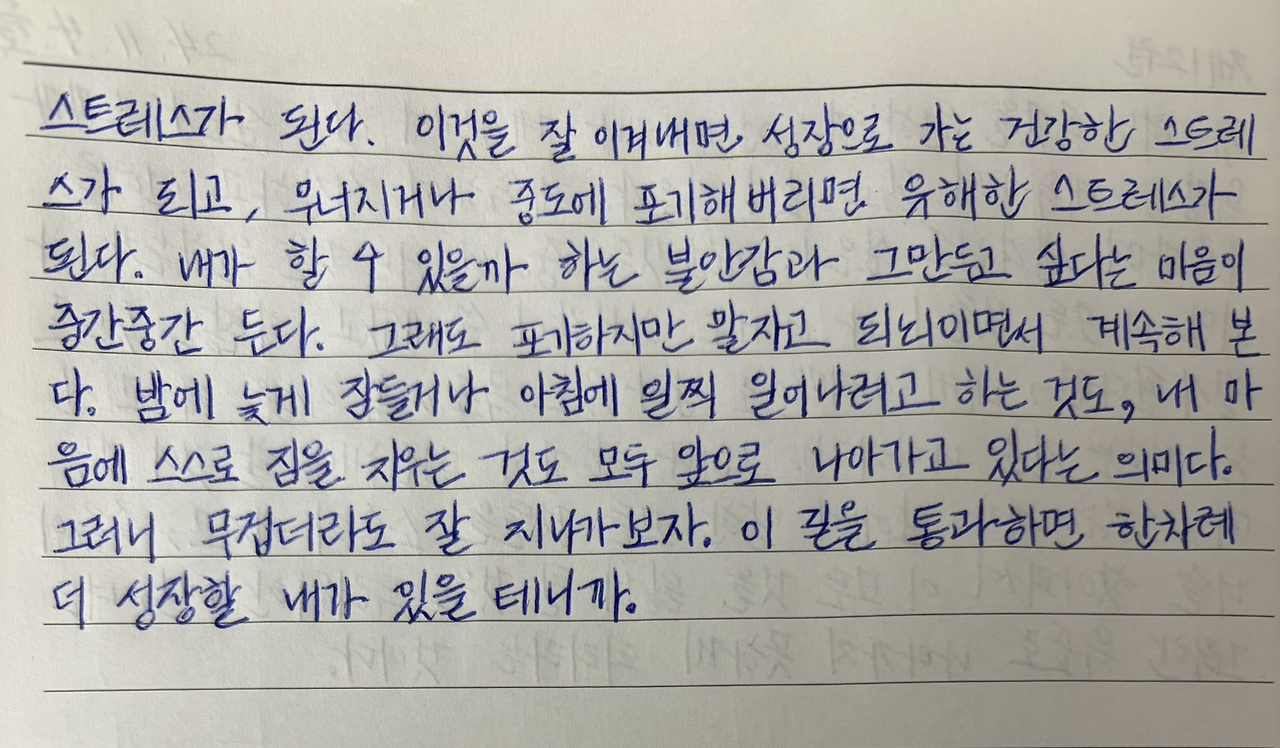 스트레스가 된다. 이것을 잘 이겨내면 성장으로 가는 건강한 스트레
스가 되고, 무너지거나 중도에 포기해버리면 유해한 스트레스가
된다. 내가 할 수 있을까 하는 불안감과 그만두고 싶다는 마음이
중간중간 든다. 그래도 포기하지만 말자고 되뇌이면서 계속해 본
다. 밤에 늦게 잠들거나 아침에 일찍 일어나려고 하는 것도, 내 마
음에 스스로 짐을 지우는 것도 모두 앞으로 나아가고 있다는 의미다.
그러니 무겁더라도 잘 지나가보자. 이 길을 통과하면 한차례
더 성장할 내가 있을 테니까.